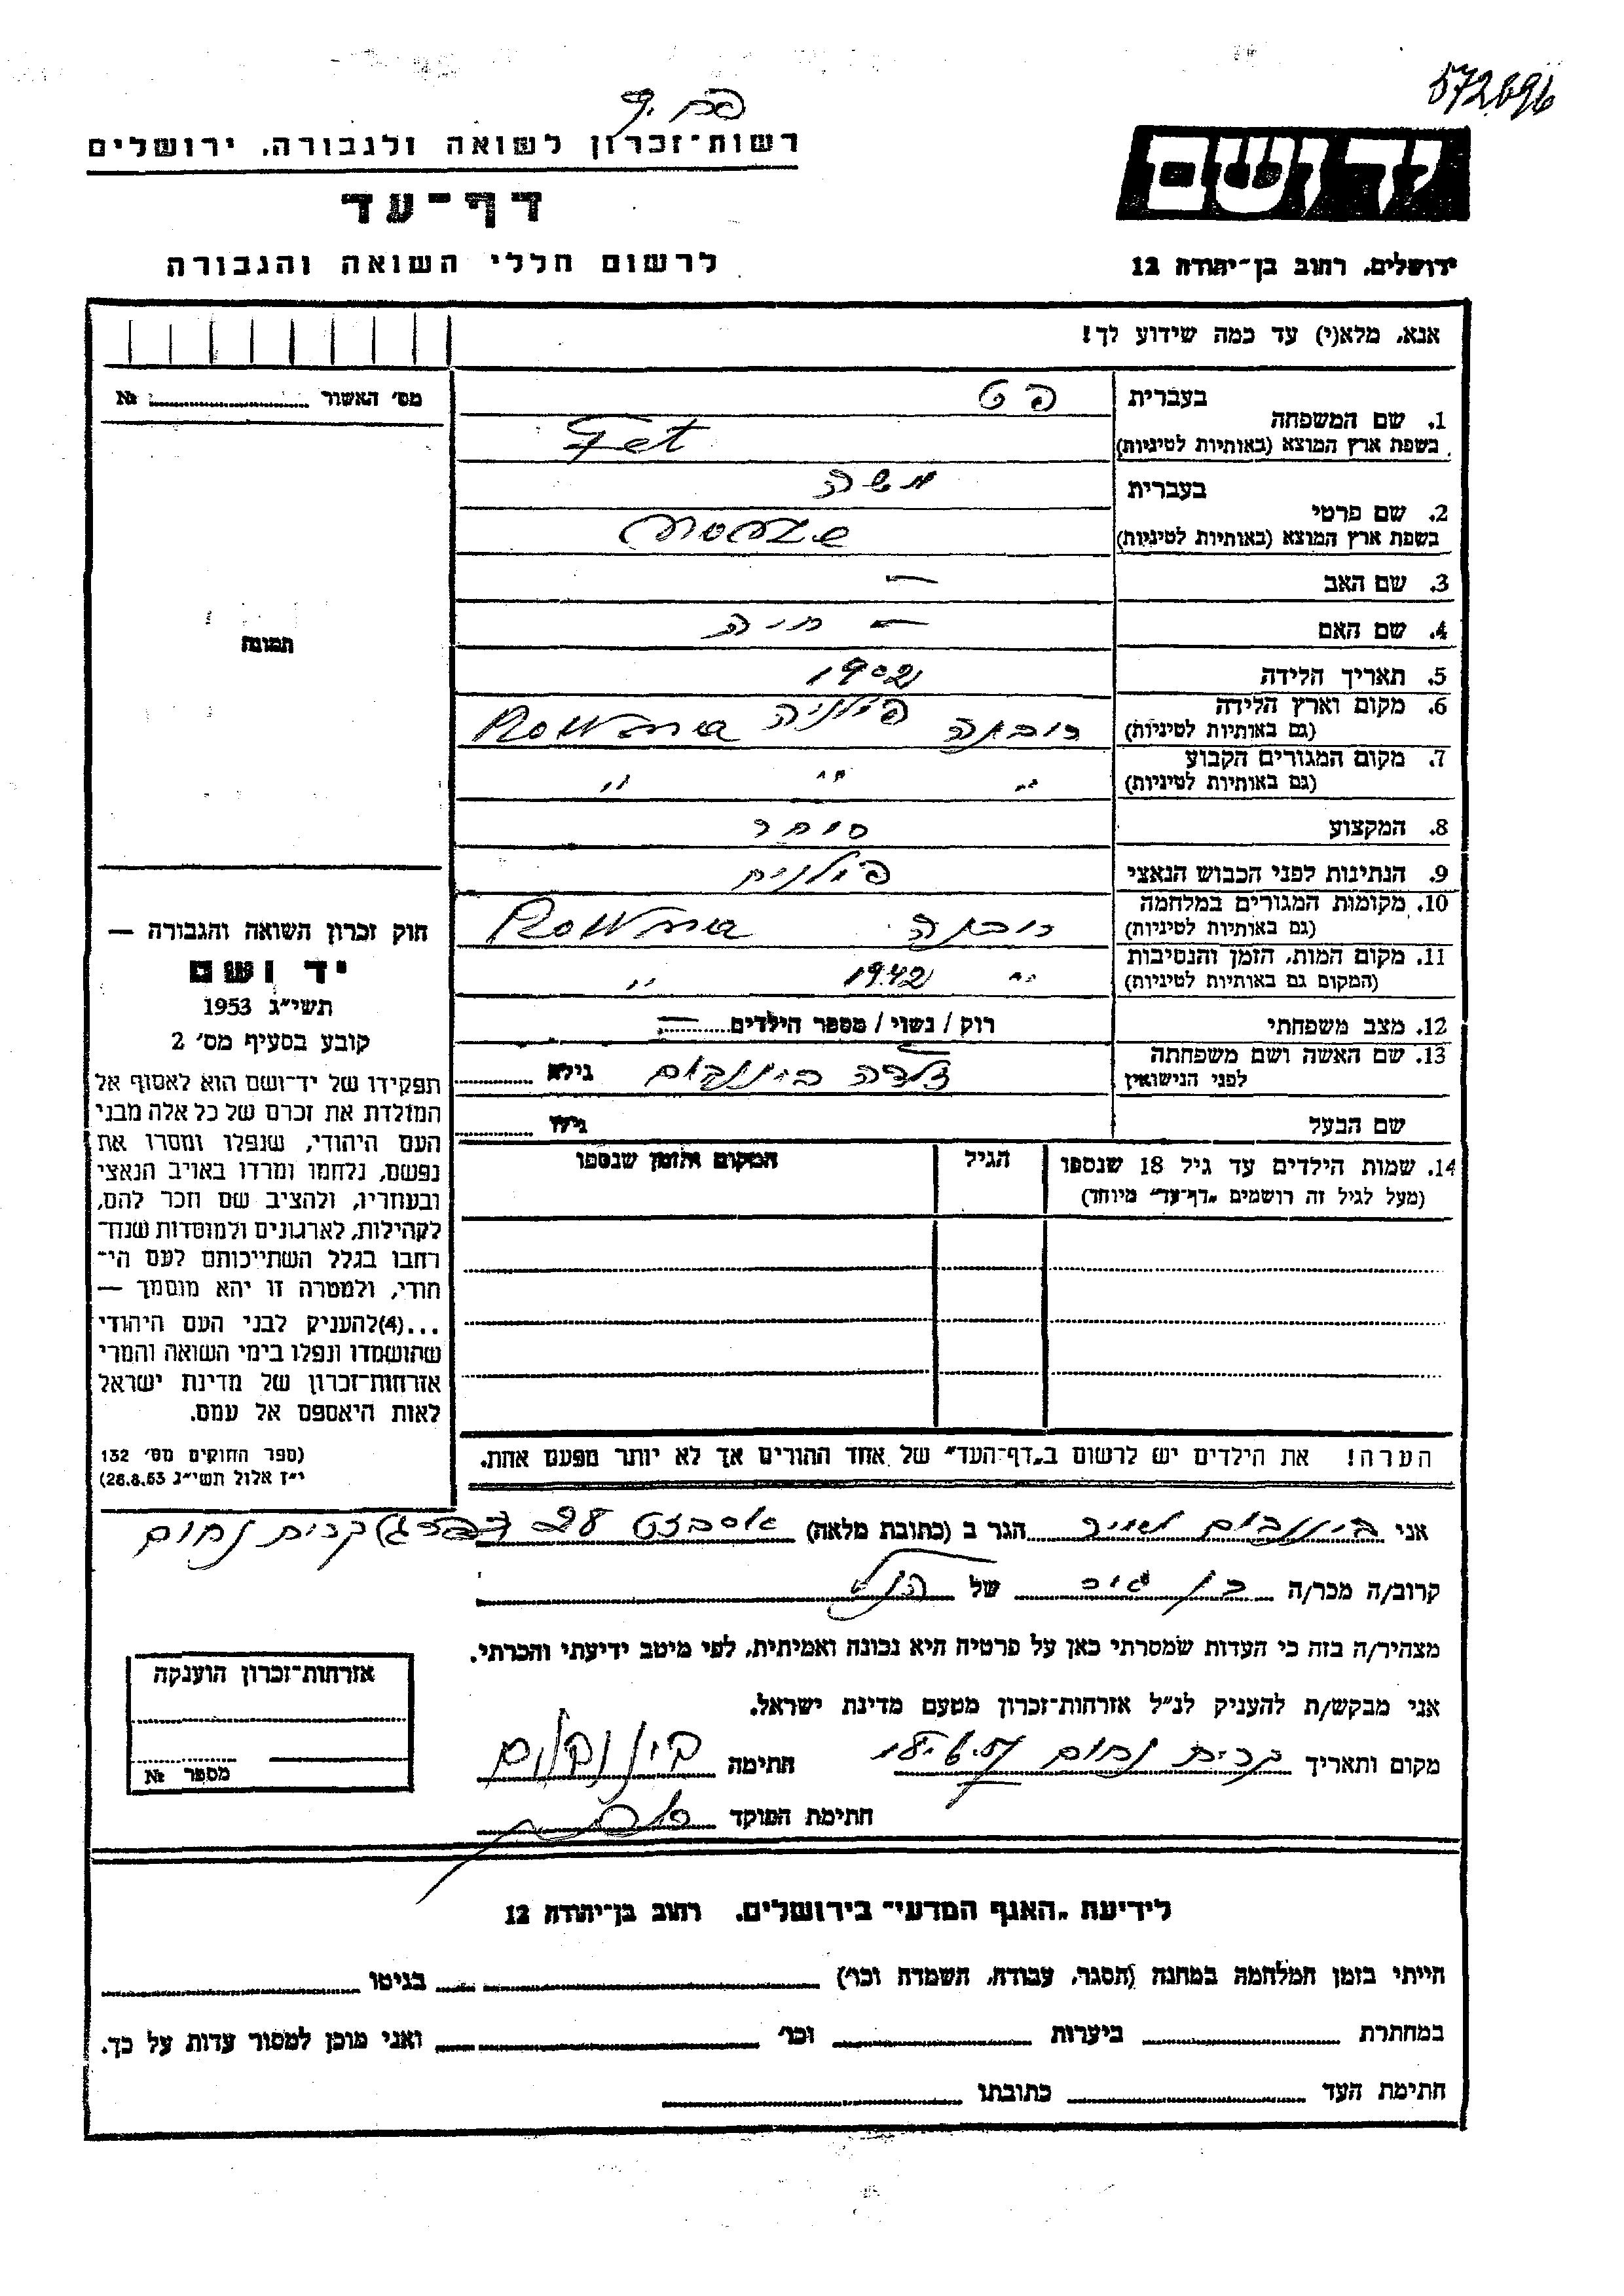 572696
רשות־זכרון לשואה ולגבורה, ירושלים
דף־עד
לרשום חללי השואה והגבורה
יד ושם
ירושלים, רחוב בן־יהודה 12
אנא, מלא(י) עד כמה שידוע לך!
מס׳ האשור № 
1. שם המשפחה
בעברית פט
בשפת ארץ המוצא (באותיות לטיניות) Fet
2. שם פרטי
בעברית משה
בשפת ארץ המוצא (באותיות לטיניות)
3. שם האב —
4. שם האם — חיה
5. תאריך הלידה 1902
6. מקום וארץ הלידה (גם באותיות לטיניות) רובנה פולניה Rowna
7. מקום המגורים הקבוע (גם באותיות לטיניות) " " "
8. המקצוע סוחר
9. הנתינות לפני הכבוש הנאצי פולנית
10. מקומות המגורים במלחמה (גם באותיות לטיניות) רובנה Rowna
11. מקום המות, הזמן והנסיבות (המקום גם באותיות לטיניות) " 1942 "
12. מצב משפחתי רוק / נשוי / מספר הילדים —
13. שם האשה ושם משפחתה לפני הנישואין בירנבוים גילה
שם הבעל גילו
14. שמות הילדים עד גיל 18 שנספו
(מעל לגיל זה רושמים „דף־עד" מיוחד)
הגיל
המקום והזמן שנספו
תמונה
חוק זכרון השואה והגבורה —
יד ושם
תשי״ג 1953
קובע בסעיף מס׳ 2
תפקידו של יד־ושם הוא לאסוף אל
המולדת את זכרם של כל אלה מבני
העם היהודי, שנפלו ומסרו את
נפשם, נלחמו ומרדו באויב הנאצי
ובעוזריו, ולהציב שם וזכר להם,
לקהילות, לארגונים ולמוסדות שנח־
רבו בגלל השתייכותם לעם הי־
הודי, ולמטרה זו יהא מוסמך —
...(4)להעניק לבני העם היהודי
שהושמדו ונפלו בימי השואה והמרי
אזרחות־זכרון של מדינת ישראל
לאות היאספם אל עמם.
(ספר החוקים מס׳ 132
י״ז אלול תשי״ג 28.8.53)
הערה! את הילדים יש לרשום ב„דף־העד" של אחד ההורים אך לא יותר מפעם אחת.
אני הגר ב (כתובת מלאה) 28 קרית נחום
קרוב/ה מכר/ה של הנ״ל
מצהיר/ה בזה כי העדות שמסרתי כאן על פרטיה היא נכונה ואמיתית, לפי מיטב ידיעתי והכרתי.
אני מבקש/ת להעניק לנ״ל אזרחות־זכרון מטעם מדינת ישראל.
מקום ותאריך קרית נחום חתימה
חתימת הפוקד
אזרחות־זכרון הוענקה
מספר №
לידיעת „האגף המדעי" בירושלים, רחוב בן־יהודה 12
הייתי בזמן המלחמה במחנה (הסגר, עבודה, השמדה וכו׳) בגיטו
במחתרת ביערות וכו׳ ואני מוכן למסור עדות על כך.
חתימת העד כתובתו